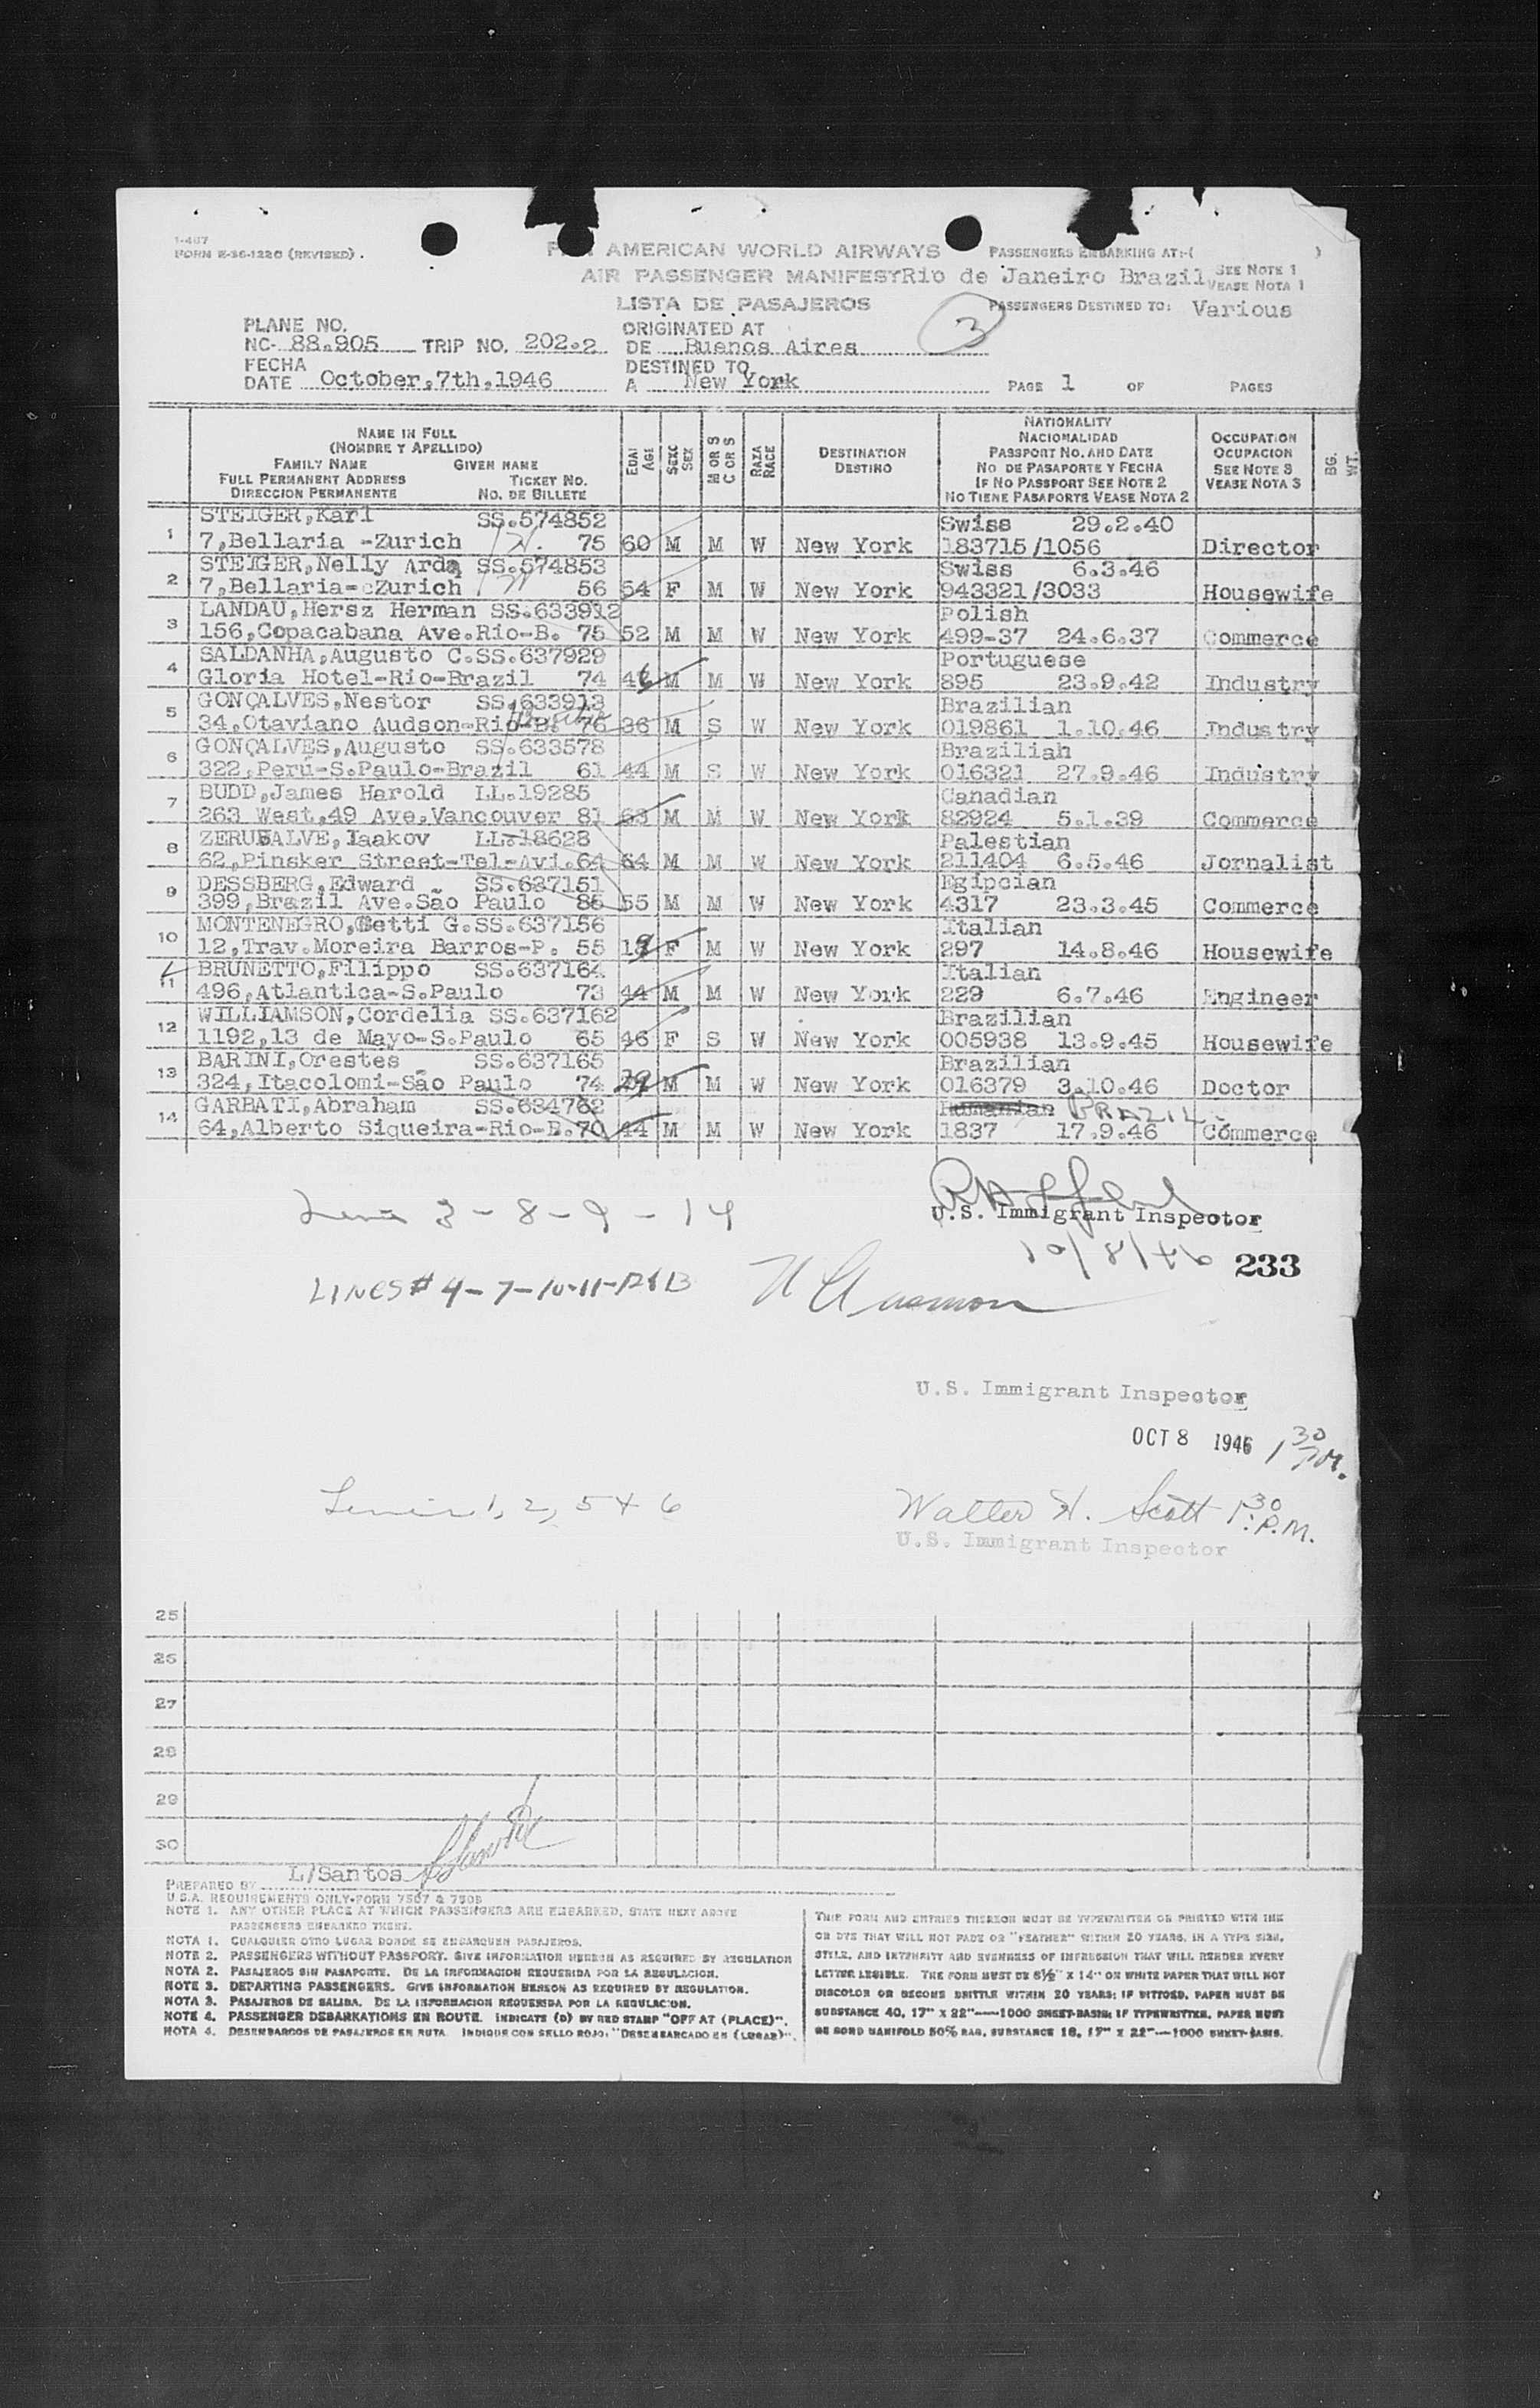 I-467
FORM E-36-122C (REVISED).
PAN AMERICAN WORLD AIRWAYS
PASSENGERS EMBARKING AT:-( )
AIR PASSENGER MANIFEST Rio de Janeiro Brazil
SEE NOTE 1
VEASE NOTA 1
LISTA DE PASAJEROS
PASSENGERS DESTINED TO: Various
3
PLANE NO.
NC- 88.905 TRIP NO. 202.2
ORIGINATED AT
DE Buenos Aires
FECHA
DATE October,7th.1946
DESTINED TO
A New York
PAGE 1 OF PAGES
NAME IN FULL
(NOMBRE Y APELLIDO)
FAMILY NAME GIVEN NAME
FULL PERMANENT ADDRESS TICKET NO.
DIRECCION PERMANENTE NO. DE BILLETE
EDAD AGE
SEXO SEX
M OR S C OR S
RAZA RACE
DESTINATION
DESTINO
NATIONALITY
NACIONALIDAD
PASSPORT NO. AND DATE
NO DE PASAPORTE Y FECHA
IF NO PASSPORT SEE NOTE 2
NO TIENE PASAPORTE VEASE NOTA 2
OCCUPATION
OCUPACION
SEE NOTE 3
VEASE NOTA 3
BG. WT.
1 STEIGER,Karl SS.574852 Swiss 29.2.40
7,Bellaria -Zurich 75 60 M M W New York 183715/1056 Director
2 STEIGER,Nelly Arda SS.574853 Swiss 6.3.46
7,Bellaria-cZurich 56 54 F M W New York 943321/3033 Housewife
3 LANDAU,Hersz Herman SS.633912 Polish
156,Copacabana Ave.Rio-B. 75 52 M M W New York 499-37 24.6.37 Commerce
4 SALDANHA,Augusto C.SS.637929 Portuguese
Gloria Hotel-Rio-Brazil 74 46 M M W New York 895 23.9.42 Industry
5 GONÇALVES,Nestor SS.633913 Brazilian
34,Otaviano Audson-Rio-B. 76 36 M S W New York 019861 1.10.46 Industry
6 GONÇALVES,Augusto SS.633578 Braziliah
322,Perú-S.Paulo-Brazil 61 44 M S W New York 016321 27.9.46 Industry
7 BUDD,James Harold LL.19285 Canadian
263 West,49 Ave.Vancouver 81 63 M M W New York 82924 5.1.39 Commerce
8 ZERUBALVE,Iaakov LL.18628 Palestian
62,Pinsker Street-Tel-Avi.64 64 M M W New York 211404 6.5.46 Jornalist
9 DESSBERG,Edward SS.637151 Egipcian
399,Brazil Ave.São Paulo 86 55 M M W New York 4317 23.3.45 Commerce
10 MONTENEGRO,Getti G.SS.637156 Italian
12,Trav.Moreira Barros-P. 55 19 F M W New York 297 14.8.46 Housewife
11 BRUNETTO,Filippo SS.637164 Italian
496,Atlantica-S.Paulo 73 44 M M W New York 229 6.7.46 Engineer
12 WILLIAMSON,Cordelia SS.637162 Brazilian
1192,13 de Mayo-S.Paulo 65 46 F S W New York 005938 13.9.45 Housewife
13 BARINI,Orestes SS.637165 Brazilian
324,Itacolomi-São Paulo 74 29 M M W New York 016379 3.10.46 Doctor
14 GARBATI,Abraham SS.634762 Romanian BRAZIL
64,Alberto Siqueira-Rio-B.70 44 M M W New York 1837 17.9.46 Commerce
3 - 8 - 9 - 14
U.S. Immigrant Inspector
10/8/46 233
LINES # 4-7-10-11-12&13
U.S. Immigrant Inspector
OCT 8 1946 1 30 P.M.
Lines 1, 2, 5 + 6
Walter H. Scott 1:30 P.M.
U.S. Immigrant Inspector
25
26
27
28
29
30
PREPARED BY L/Santos
U.S.A. REQUIREMENTS ONLY-FORM 7507 & 7508
NOTE 1. ANY OTHER PLACE AT WHICH PASSENGERS ARE EMBARKED, STATE NEXT ABOVE
PASSENGERS EMBARKED THERE.
NOTA 1. CUALQUIER OTRO LUGAR DONDE SE EMBARQUEN PASAJEROS.
NOTE 2. PASSENGERS WITHOUT PASSPORT. GIVE INFORMATION HEREON AS REQUIRED BY REGULATION
NOTA 2. PASAJEROS SIN PASAPORTE. DE LA INFORMACION REQUERIDA POR LA REGULACION.
NOTE 3. DEPARTING PASSENGERS. GIVE INFORMATION HEREON AS REQUIRED BY REGULATION.
NOTA 3. PASAJEROS DE SALIDA. DE LA INFORMACION REQUERIDA POR LA REGULACION.
NOTE 4. PASSENGER DEBARKATIONS EN ROUTE. INDICATE (D) BY RED STAMP "OFF AT (PLACE)".
NOTA 4. DESEMBARCOS DE PASAJEROS EN RUTA. INDIQUE CON SELLO ROJO: "DESEMBARCADO EN (LUGAR)".
THIS FORM AND ENTRIES THEREON MUST BE TYPEWRITTEN OR PRINTED WITH INK
OR DYE THAT WILL NOT FADE OR "FEATHER" WITHIN 20 YEARS, IN A TYPE SIZE,
STYLE, AND INTENSITY AND EVENNESS OF IMPRESSION THAT WILL RENDER EVERY
LETTER LEGIBLE. THE FORM MUST BE 8½" X 14" ON WHITE PAPER THAT WILL NOT
DISCOLOR OR BECOME BRITTLE WITHIN 20 YEARS; IF DITTOED, PAPER MUST BE
SUBSTANCE 40, 17" X 22"—1000 SHEET-BASIS; IF TYPEWRITTEN, PAPER MUST
BE BOND MANIFOLD 50% RAG, SUBSTANCE 16, 17" X 22"—1000 SHEET-BASIS.